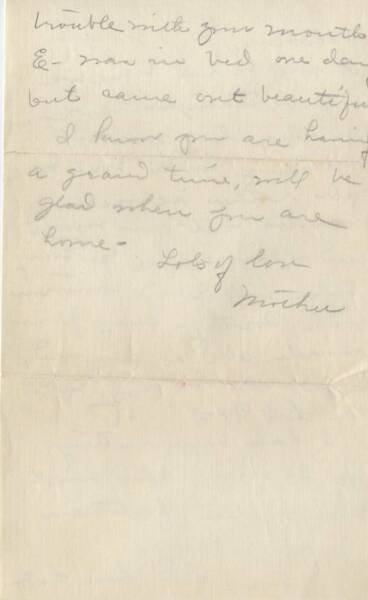 trouble with your mouth
E- was in bed one day
but came out beautiful
I know you are having
a grand time, will be
glad when you are
home-
Lots of love
Mother